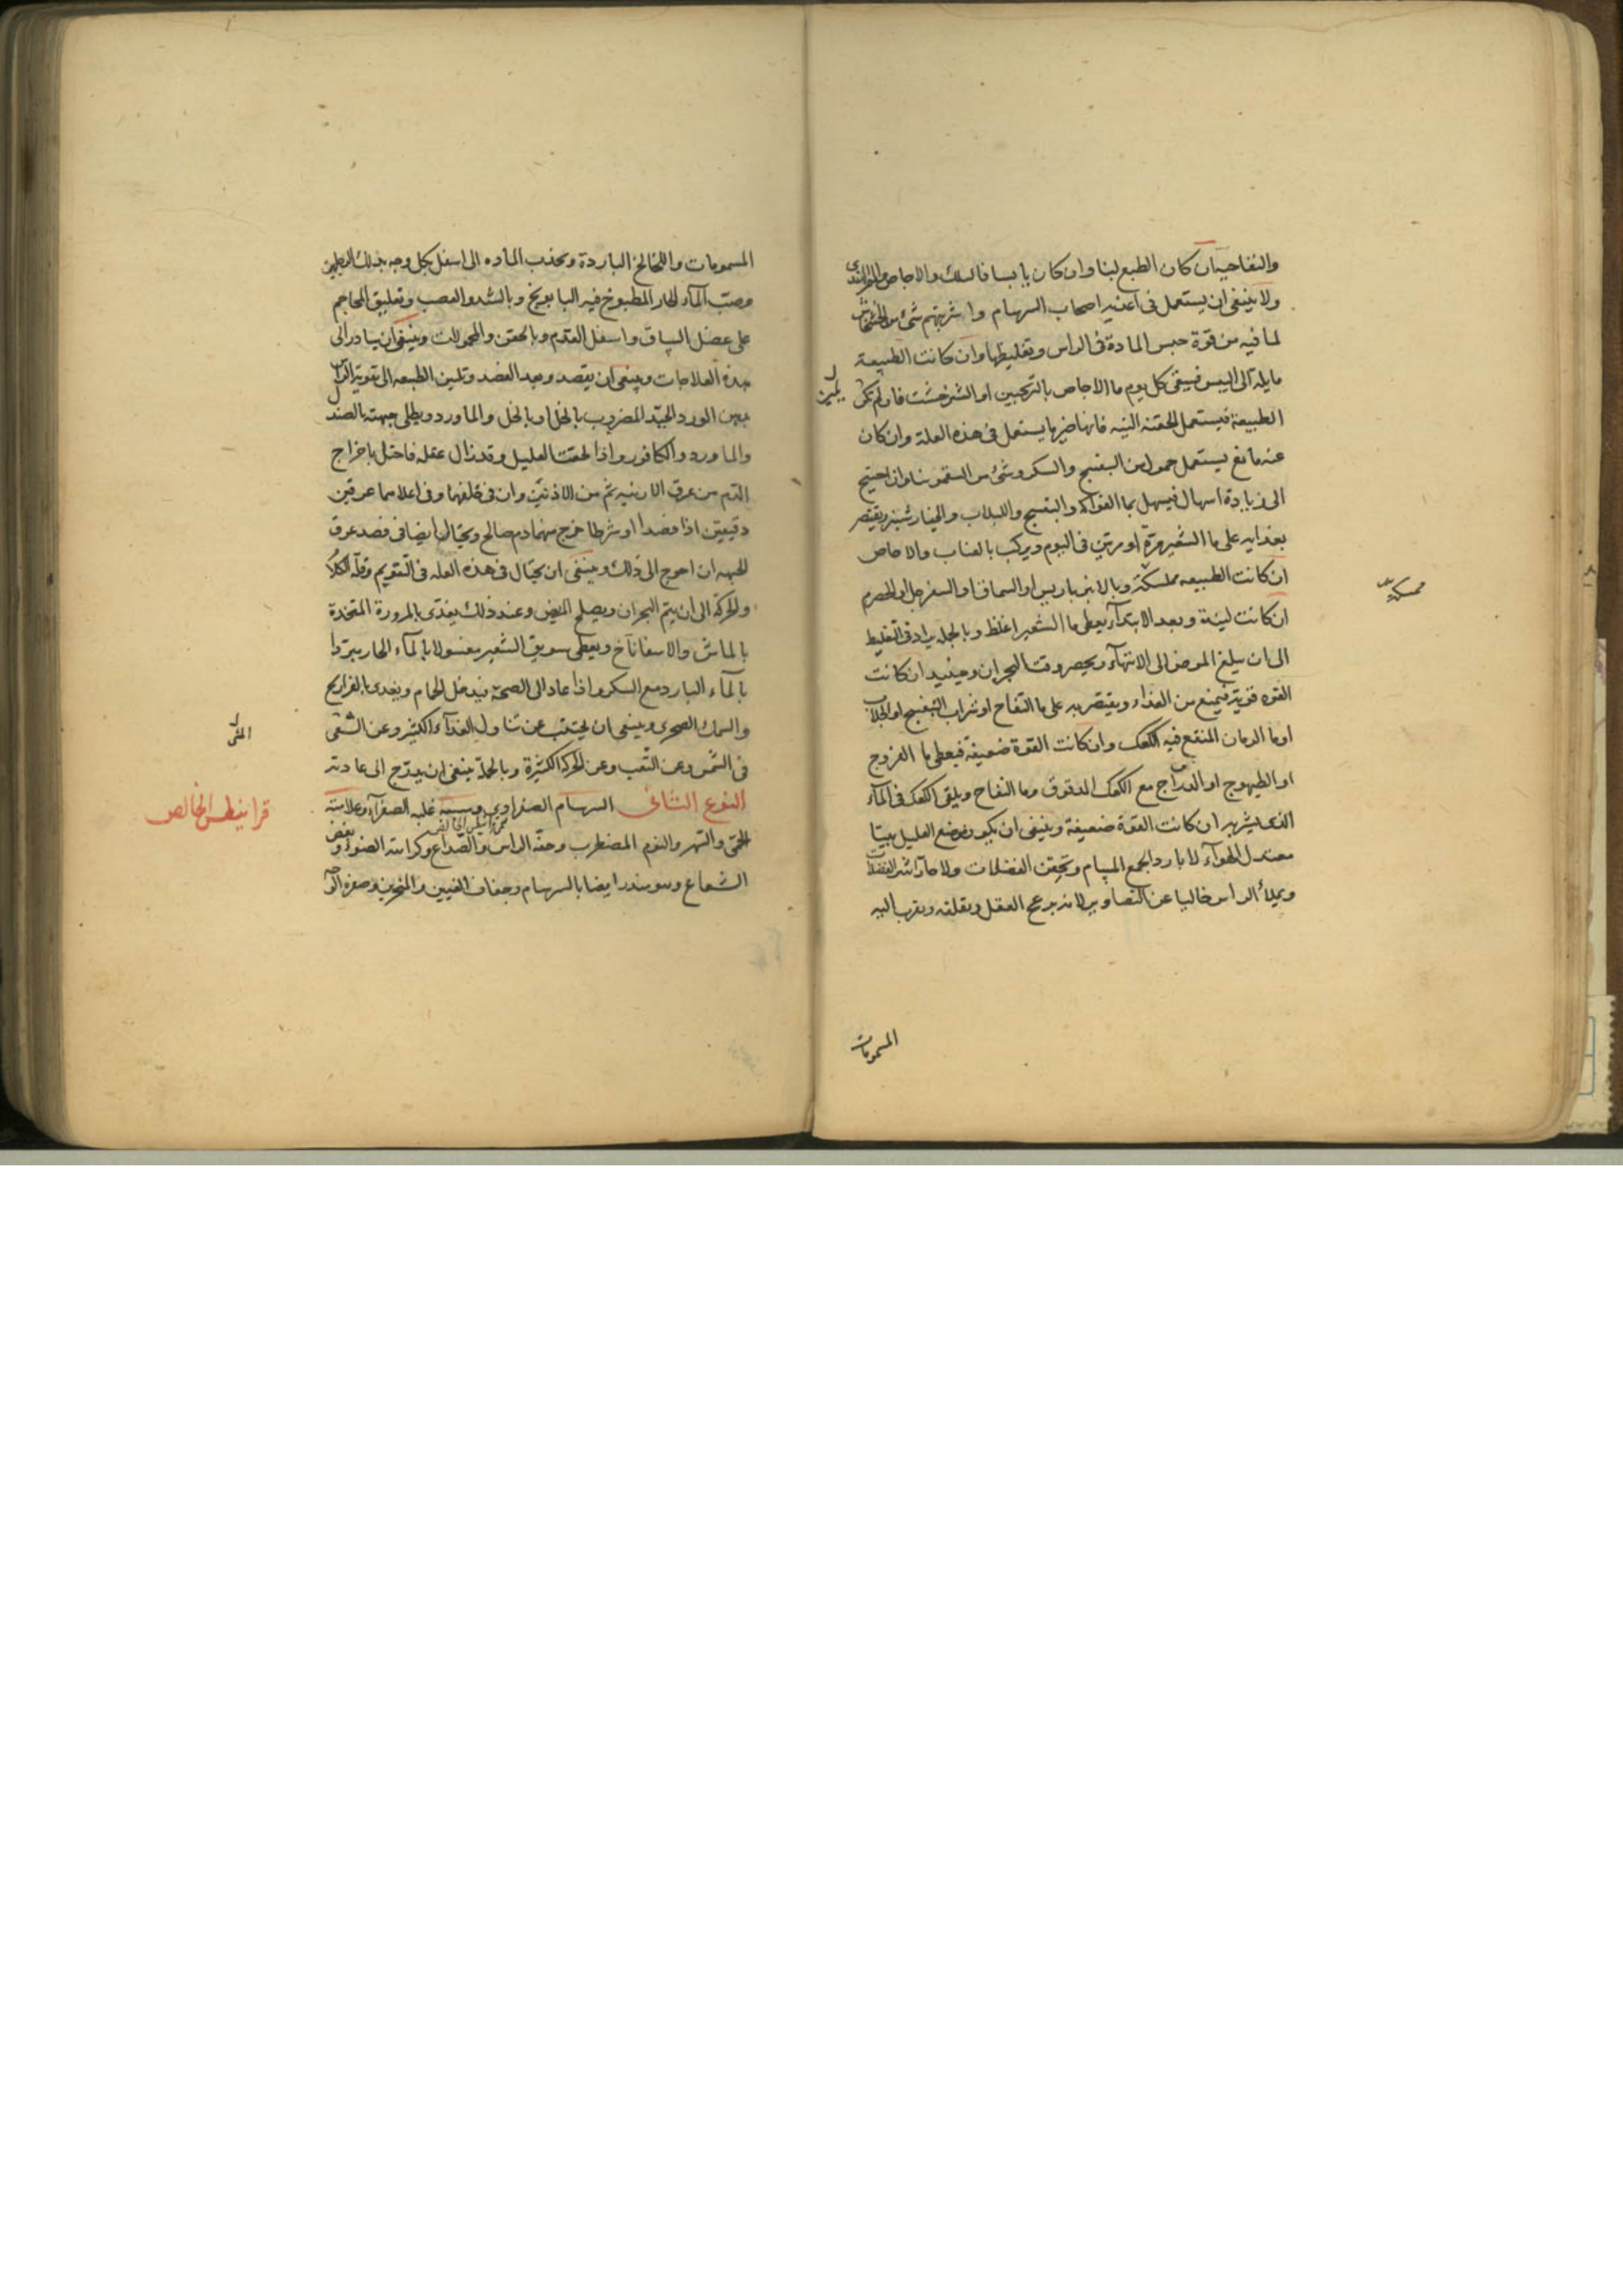 والتفاحية ان كان الطبع لينا وان كان يابسا فالسلق والاجاص والتمر الهندى
ولا ينبغى ان يستعمل فى اغذية اصحاب السرسام واشربتهم شئ من الخشخاش
لما فيه من قوة حبس المادة فى الراس وتغليظها وان كانت الطبيعة
مايلة الى اليبس فيسقى كل يوم ما الاجاص بالترنجبين او الشيرخشت فان لم تلن
الطبيعة فيستعمل الحقنة اللينه فانها خير ما يستعمل فى هذه العلة وان كان
عنه مانع يستعمل حمولا من البنفسج والسكر وشئ من السقمونيا وان احتيج
الى زيادة اسهال فيسهل بما الفواكه والبنفسج واللبلاب والخيار شنبر ويقتصر
بغذايه على ما الشعير مرة او مرتين فى اليوم ويركب بالعناب والاجاص
ان كانت الطبيعه ممسكة وبالانبرباريس او السماق او السفرجل او الحصرم
ان كانت لينة وبعد الابتدآ يعطى ما الشعير اغلظ وبالجملة يزاد فى التغليظ
الى ان يبلغ المرض الى الانتهآء ويحضر وقت البحران وحينيذ ان كانت
القوه قوية فيمنع من الغذاء ويقتصر به على ما التفاح او شراب البنفسج او الجلاب
او ما الرمان المنقع فيه الكعك وان كانت القوة ضعيفة فيعطى ما الفروج
او الطيهوج او الدراج مع الكعك المدقوق وما التفاح ويلقى الكعك فى المآء
الذى يشربه ان كانت القوة ضعيفة وينبغى ان يكون موضع العليل بيتا
معتدل الهوآء لا باردا يجمع المسام ويحقن الفضلات ولا حارآ يثير الفضلات
ويملأ الراس خاليا عن التصاوير لانه يزعج العقل ويقلقه ويقرب اليه
ممسكة
المشمومات
المشمومات واللخالخ الباردة وتجذب الماده الى اسفل بكل وجه بدلك الرجلين
وصبّ المآء الحار المطبوخ فيه البابونج وبالشد والعصب وتعليق المحاجم
على عضل الساق واسفل القدم وبالحقن والحمولات وينبغى ان يبادر الى
هذه العلاجات وينبغى ان يقصد وبعد الفصد وتليين الطبيعه الى تقوية الراس
بدهن الورد الجيّد المضروب بالخل او بالخل والماورد ويطلى جبهته بالصندل
والماورد والكافور واذا لحقت العليل وقد زال عقله فاحتل باخراج
الدم من عرق الارنبه ثم من الاذنين وان فى خلفهما وفى اعلاهما عرقين
دقيقين اذا فصدا او شرطا خرج منهما دم صالح ويحتال ايضا فى فصد عرق
الجبهه ان احوج الى ذلك وينبغى ان يحتال فى هذه العله فى التنويم وقلة الكلام
والحركة الى ان يتم البحران ويصلح المريض وعند ذلك يغذى بالمزورة المتخذة
بالماش والاسفاناخ ويعطى سويق الشعير مغسولا بالمآء الحار مبرّدا
بالمآء البارد مع السكر واذا عاد الى الصحة يدخل الحمام ويغذى بالفراريج
والسمك الصخرى وينبغى ان يجتنب عن تناول الغذآء الكثير وعن المشى
فى الشمس وعن التعب وعن الحركة الكثيرة وبالجملة ينبغى ان يدرّج الى عادته
النوع الثانى السرسام الصفراوى وسببه غلبه الصفرآء وعلامته
الحمّى والسهر والنوم المضطرب وخفّة الراس والصداع وكراهته الضوء وبغض
الشعاع وهو ينذر ايضا بالسرسام وجفاف العينين والمنخرين وصفرة الوجه
قرانيطس الخالص